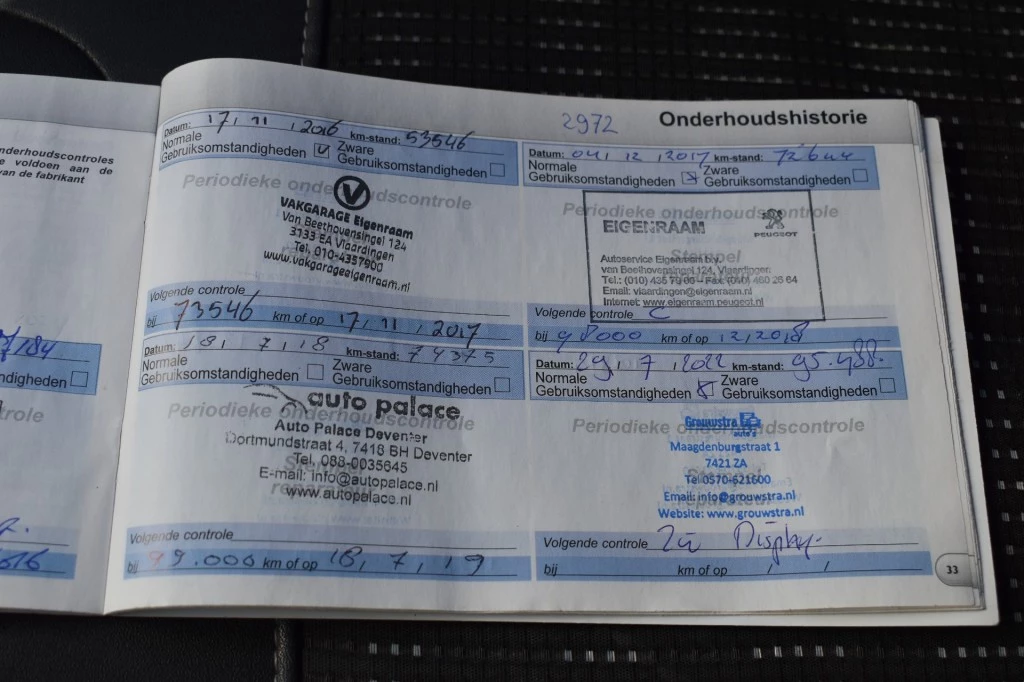 nderhoudscontroles
e voldoen aan de
van de fabrikant
184
digheden
role
616
2972
Onderhoudshistorie
Datum: 17, 11, 2016 km-stand: 53546
Normale
Gebruiksomstandigheden
Zware
Gebruiksomstandigheden
VAKGARAGE Eigenraam
Van Beethovensingel 124
3133 EA Vlaardingen
Tel. 010-4357900
www.vakgarageeigenraam.nl
Volgende controle
bij 73546 km of op 17, 11, 2017
Datum: 04, 12, 2017 km-stand: 72644
Normale
Gebruiksomstandigheden
Zware
Gebruiksomstandigheden
Periodieke onderhoudscontrole
Stempel
EIGENRAAM
PEUGEOT
Autoservice Eigenraam b.v.
van Beethovensingel 124, Vlaardingen
Email: vlaardingen@eigenraam.nl
Internet: www.eigenraam.peugeot.nl
Volgende controle C
bij 98000 km of op 12, 2018
Datum: 18, 7, 18 km-stand: 74375
Normale
Gebruiksomstandigheden
Zware
Gebruiksomstandigheden
Periodieke onderhoudscontrole
auto palace
Auto Palace Deventer
Dortmundstraat 4, 7418 BH Deventer
Tel. 088-0035645
E-mail: info@autopalace.nl
www.autopalace.nl
Volgende controle
bij 99.000 km of op 18, 7, 19
Datum: 29, 7, 2022 km-stand: 95.488.
Normale
Gebruiksomstandigheden
Zware
Gebruiksomstandigheden
Periodieke onderhoudscontrole
Grouwstra
auto's
Maagdenburgstraat 1
7421 ZA
Tel 0570-621600
Email: info@grouwstra.nl
Website: www.grouwstra.nl
Volgende controle Zie Display.
bij km of op / /
33